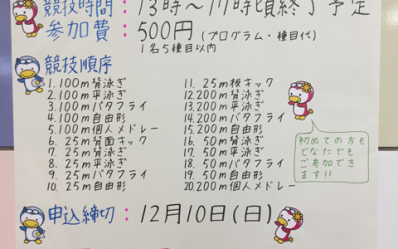 競技時間：13時～17時頃終了予定
参加費：500円(プログラム・種目代)
1名5種目以内
競技順序
1. 100m背泳ぎ
2. 100m平泳ぎ
3. 100mバタフライ
4. 100m自由形
5. 100m個人メドレー
6. 25m背面キック
7. 25m背泳ぎ
8. 25m平泳ぎ
9. 25mバタフライ
10. 25m自由形
11. 25m板キック
12. 200m背泳ぎ
13. 200m平泳ぎ
14. 200mバタフライ
15. 200m自由形
16. 50m背泳ぎ
17. 50m平泳ぎ
18. 50mバタフライ
19. 50m自由形
20. 200m個人メドレー
初めての方も
どなたでも
ご参加でき
ます!!
申込締切：12月10日(日)